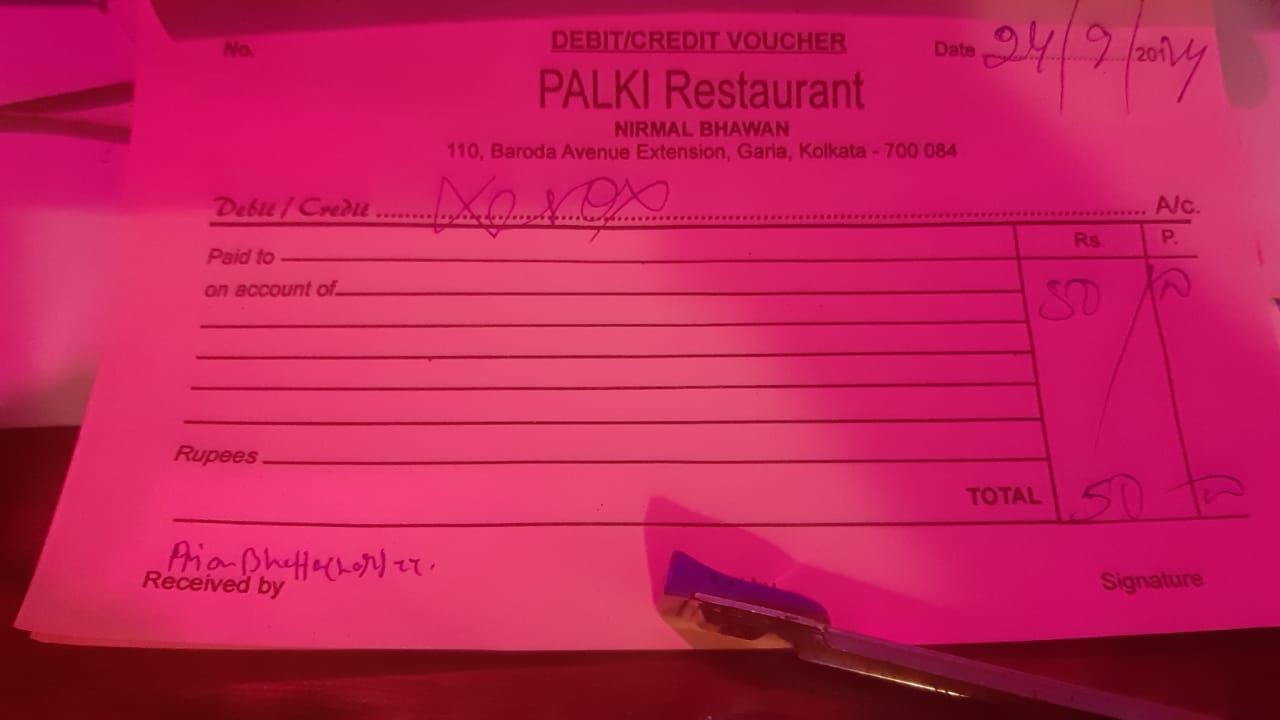 DEBIT/CREDIT VOUCHER
No.
Date 24/9/2014
PALKI Restaurant
NIRMAL BHAWAN
110, Baroda Avenue Extension, Garia, Kolkata - 700 084
Debit / Credit Xerox A/c.
Rs. P.
Paid to
on account of 50 00
Rupees
TOTAL 50 00
Received by
Signature